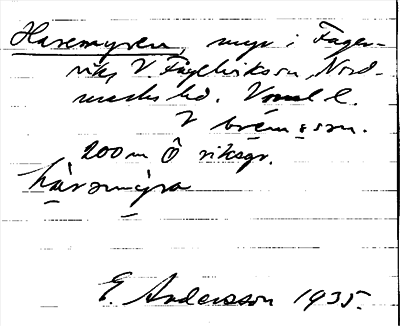 Haremyren, myr i Fager-
vik, V. Fågelvik sn, Nord-
marks hd. Värml. l.
200 m Ö riksgr.
hàrəmýra
E. Andersson 1935.